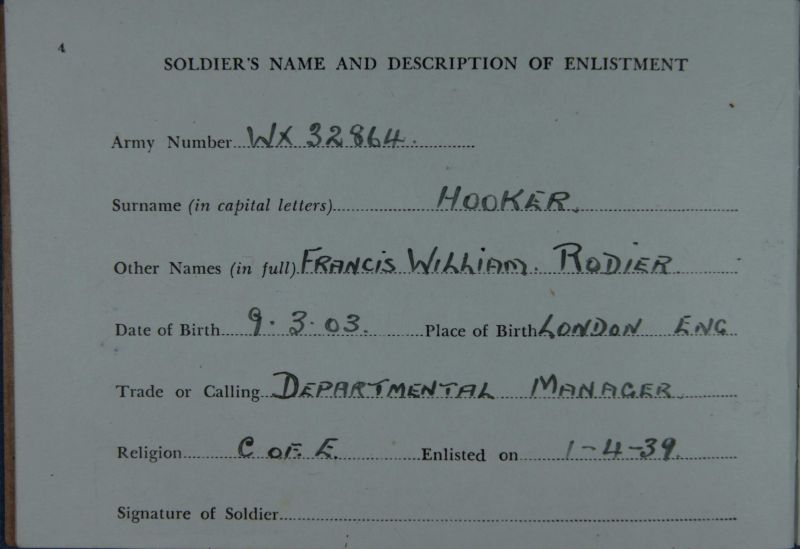 4
SOLDIER'S NAME AND DESCRIPTION OF ENLISTMENT
Army Number WX 32864.
Surname (in capital letters) HOOKER.
Other Names (in full) FRANCIS WILLIAM. RODIER.
Date of Birth 9.3.03. Place of Birth LONDON ENG
Trade or Calling DEPARTMENTAL MANAGER.
Religion C OF E. Enlisted on 1-4-39.
Signature of Soldier